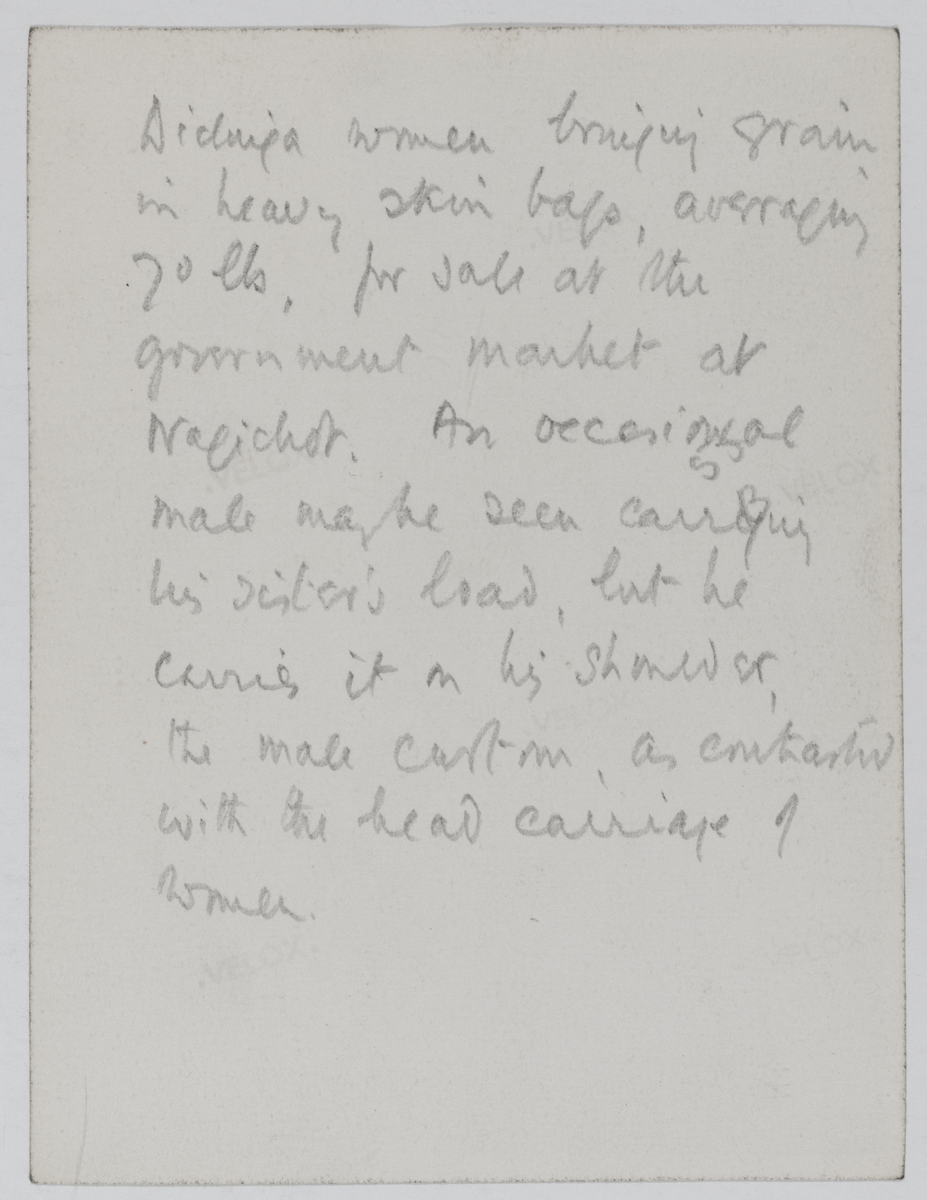 Didinga women bringing grain
in heavy skin bags, averaging
70 lbs, for sale at the
government market at
Nagichot. An occasional
male may be seen carrying
his sister's load, but he
carries it on his shoulder,
the male custom, as contrasted
with the head carriage of
women.
VELOX
VELOX
VELOX
VELOX
VELOX